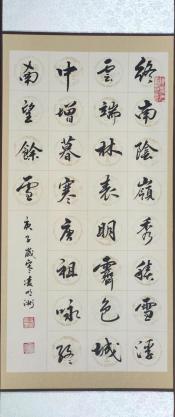 終南陰嶺秀積雪浮
雲端林表明霽色城
中增暮寒唐祖咏終
南望餘雪
庚子歲寒